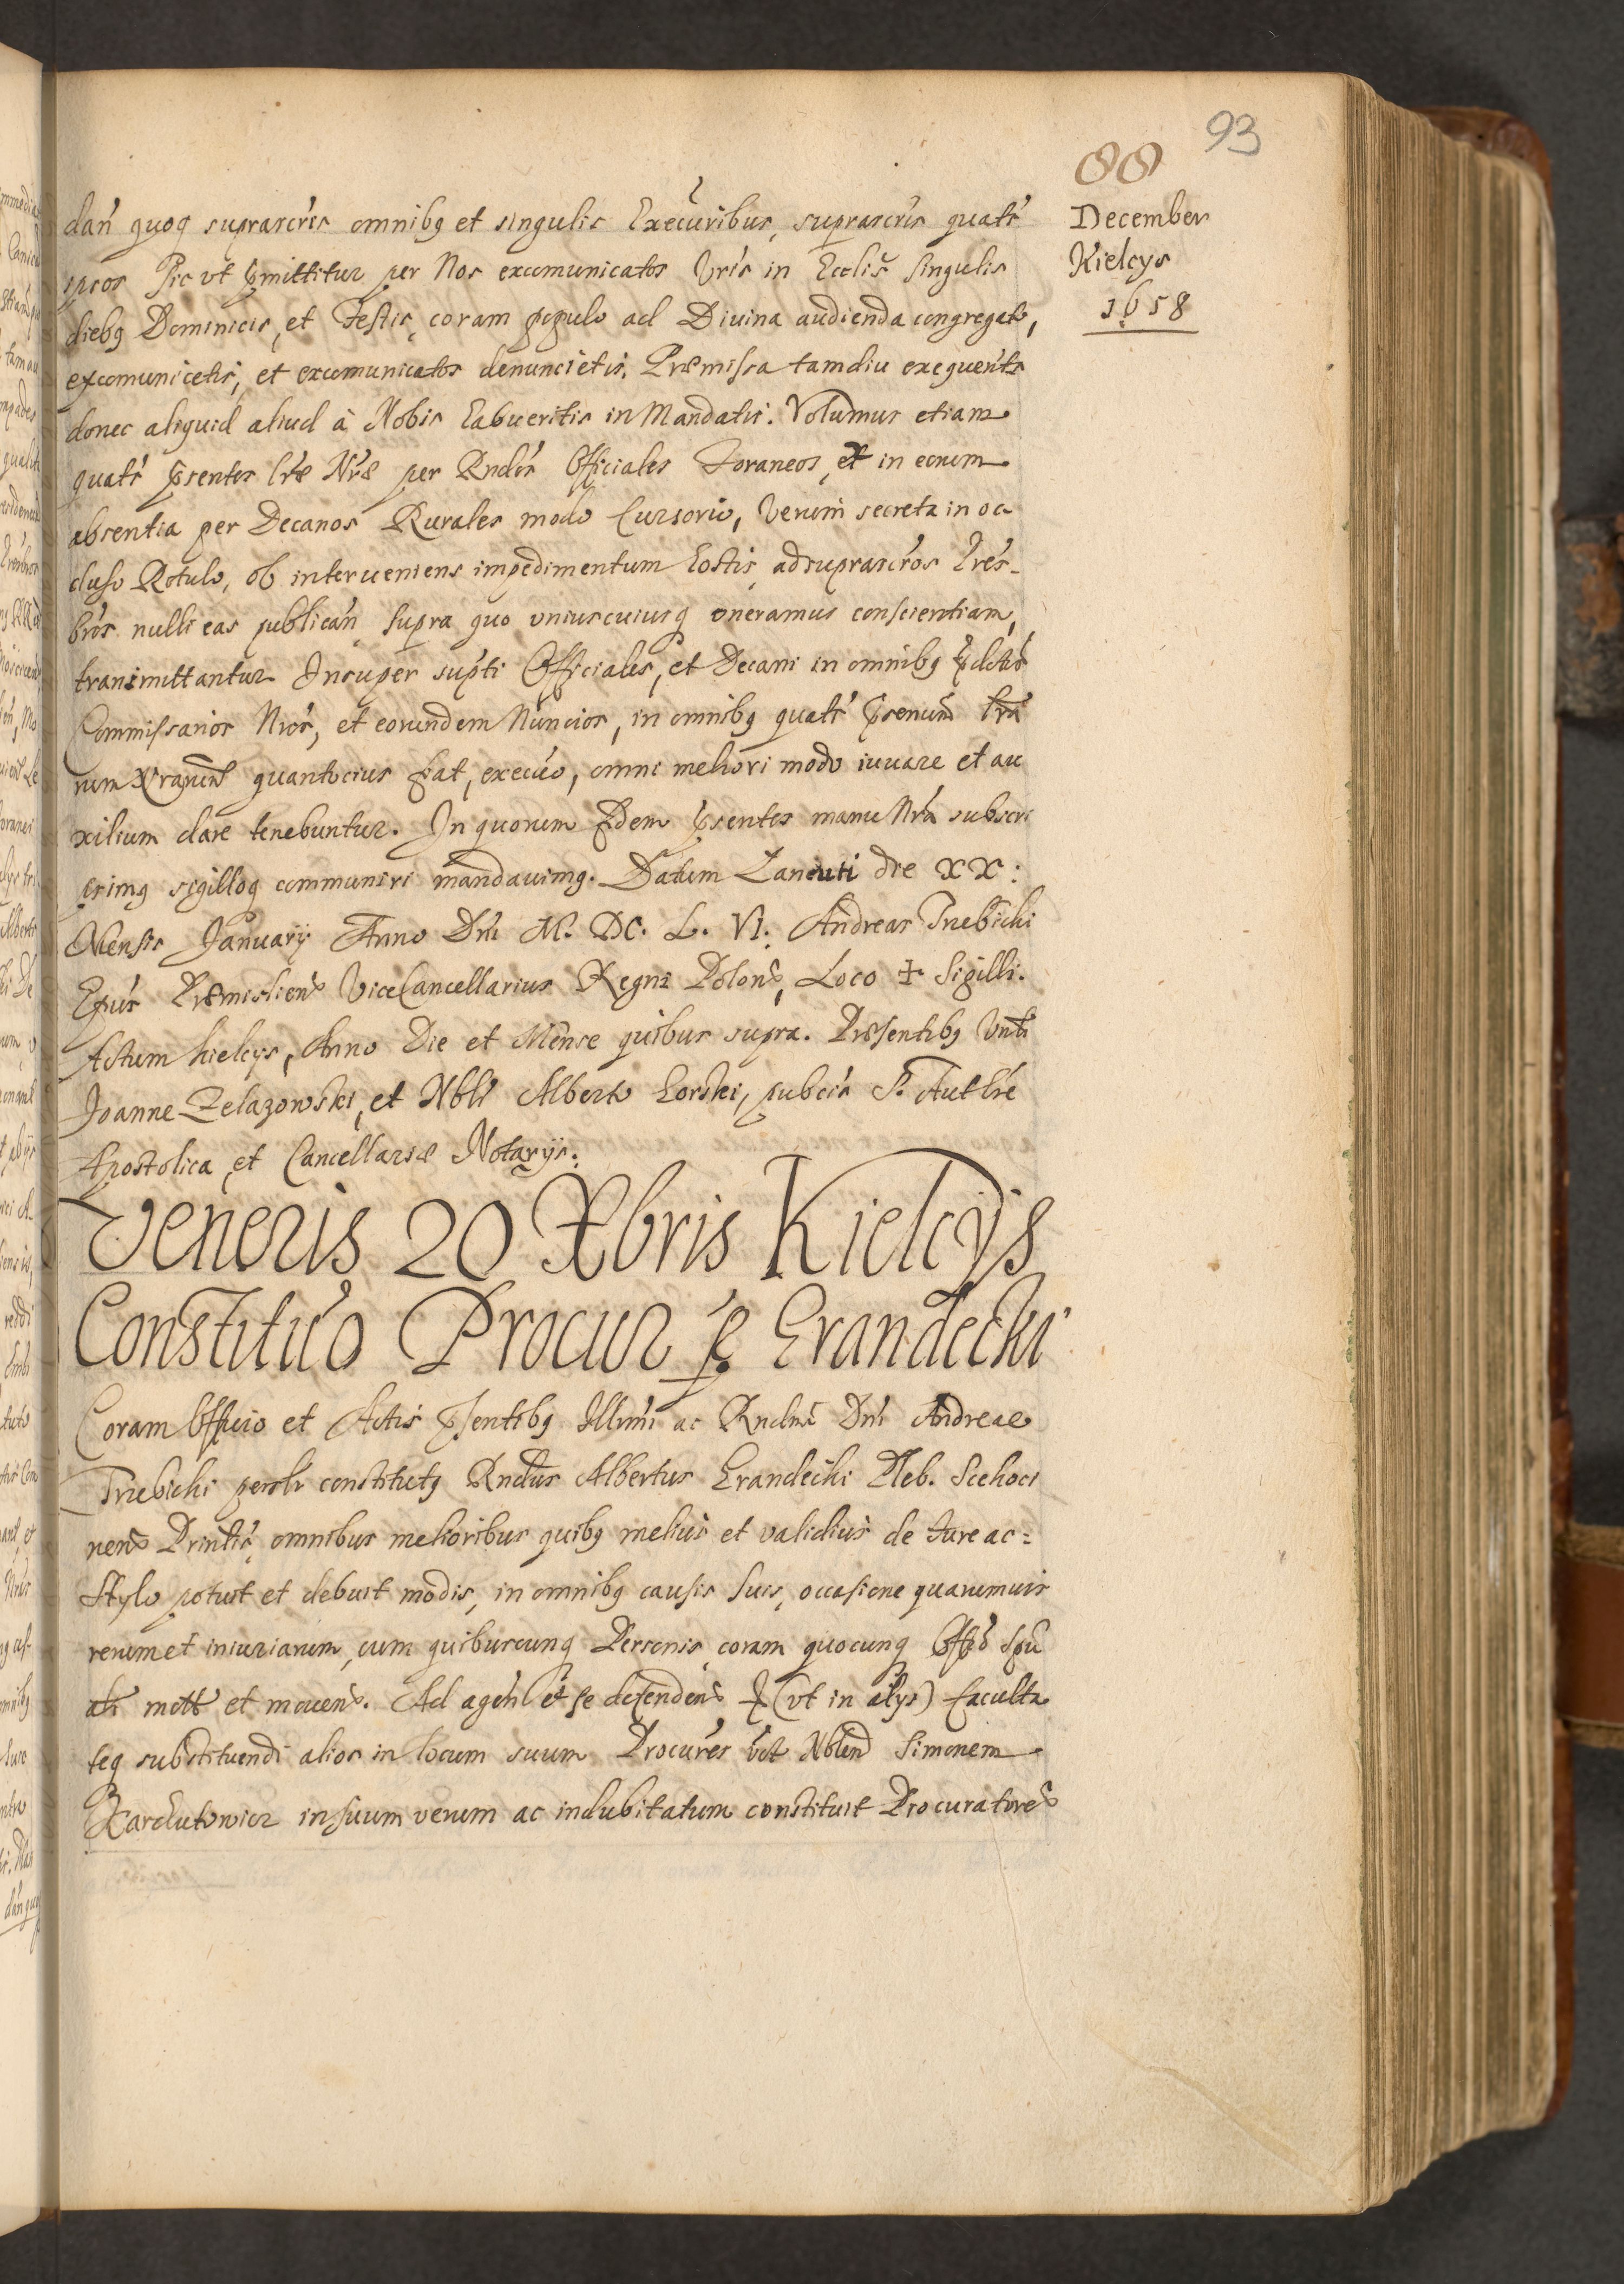 93
88
December
Kielcys
1658
dan̄ quoq suprascrīs omnibq et singulis Execūribus, suprascrīs quatr̄
ipsos sic vt p̄mittitur per Nos excomunicatos Vr̄is in Eccliis singulis
diebq Dominicis, et Festis, coram populo ad Diuina audienda congregato,
excomunicetis, et excomunicatos denuncietis. Præmissa tamdiu exequen̄ts
donec aliquid aliud à Nobis habueritis in Mandatis. Volumus etiam
quatr̄ p̄sentes lr̄æ Nr̄æ per Rndōs Officiales Foraneos, et in eorum
absentia per Decanos Rurales modo Cursorio, Verum secreta in oc
cluso Rotulo, ob interueniens impedimentum hostis, ad suprascrōs
nulli eas publican̄ supra quo vniuscuiusq oneramus conscientiam,
transmittantur Insuper sup̄ti Officiales, et Decani in omnibq p̄dctōs
Commissarios Nrōs, et eorundem Nuncios, in omnibq quatr̄ p̄senum̄ lr̄a
rum quantocius fiat, execuō, omni meliori modo iuuare et au
xilium dare tenebuntur. In quorum fidem p̄sentes manu Nr̄a subscri
psimq sigilloq communiri mandauimq. Datum Lancuti die XX:
Mensis January Anno Dnī M. DC. L. VI. Andreas Trzebicki
Epūs Præmislien̄s ViceCancellarius Regni Polon̄, Loco ✠ Sigilli.
Actum Kielcys, Anno Die et Mense quibus supra. Præsentibq Vnbli
Joanne Zelazowski, et Nbli Alberto Gorski, pubcīs S. Authr̄e
Apostolica, et Cancellariæ Notarys.
Veneris 20 Xbris Kielcÿs
Constituō Procur p Grandecki
Coram Officio et Actis p̄sentibq Illmi ac Rndmī Dnī Andreae
Trzebicki persolr constitutq Rndūs Albertus Grandecki Pleb. Scehoci
nens̄ Printīs, omnibus melioribus quibq melius et validius de Iure ac=
Stylo potuit et debuit modis, in omnibq causis suis, occasione quarumuis
rerum et iniuriarum, cum quibuscunq Personis, coram quocunq Offō Spū
ali mott et mouen̄. Ad agen̄ et se defenden̄, (vt in alys) faculta
teq substituendi alios in locum suum Procurēs Nblem̄ Simonem
Karchutowicz in suum verum ac indubitatum constituit Procuratorē